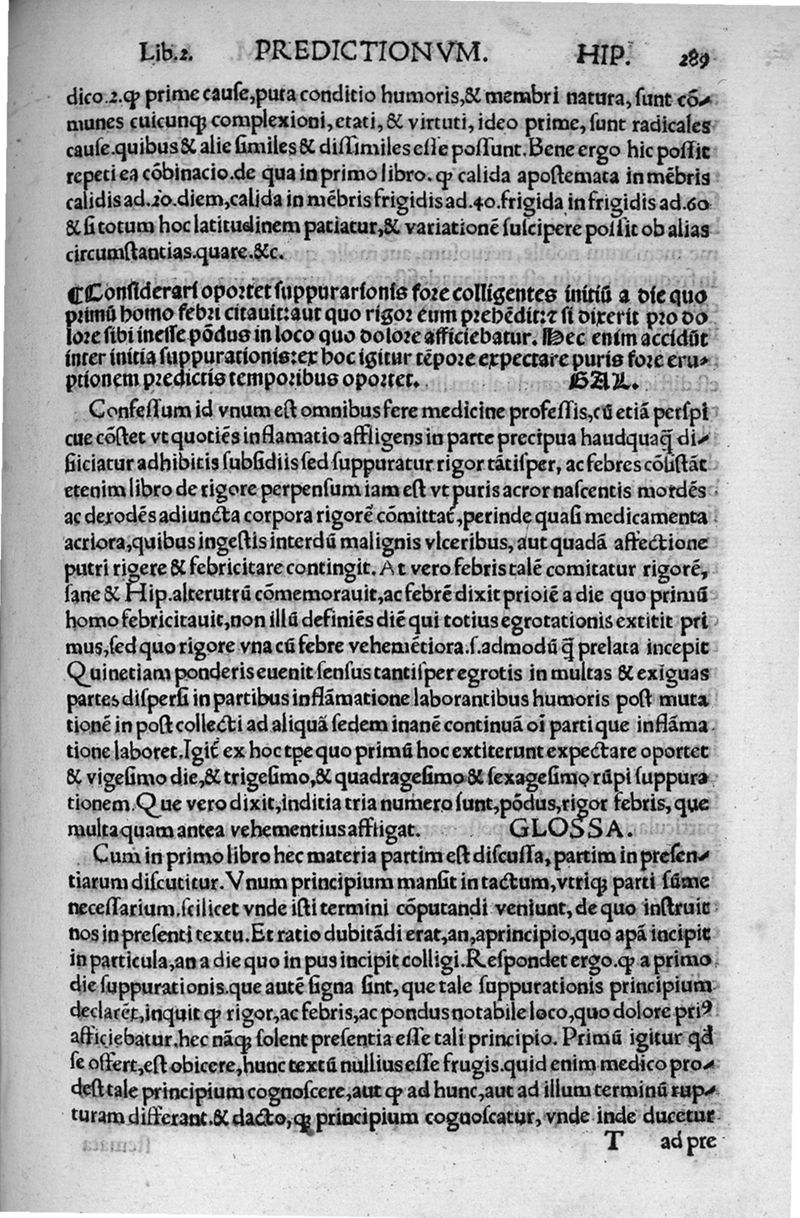 Lib.2. PREDICTIONVM. HIP. 289
dico.2.ꝙ prime cause,puta conditio humoris,& membri natura, sunt cõ-
munes cuicunqꝫ complexioni, etati, & virtuti, ideo prime, sunt radicales
cause.quibus & alie similes & dissimiles esse possunt. Bene ergo hic possit
repeti ea cõbinacio.de qua in primo libro. ꝙ calida apostemata in mẽbris
calidis ad.20.diem,calida in mẽbris frigidis ad.40.frigida in frigidis ad.60
& si totum hoc latitudinem patiatur,& variationẽ suscipere possit ob alias
circumstantias.quare.&c.
¶Considerari oportet suppurationis fore colligentes initiũ a die quo
primũ homo febri citauit:aut quo rigor eum prehẽdit:⁊ si dixerit pro do
lore sibi inesse põdus in loco quo dolore afficiebatur. Hec enim accidũt
inter initia suppurationis:ex hoc igitur tẽpore expectare puris fore eru-
ptionem predictis temporibus oportet. GAL.
Confessum id vnum est omnibus fere medicine professis,cũ etiã perspi
cue cõstet vt quotiẽs inflamatio affligens in parte precipua haudquaq̃ di-
siiciatur adhibitis subsidiis sed suppuratur rigor tãtisper, ac febres cõsistãt
etenim libro de rigore perpensum iam est vt puris acror nascentis mordẽs
ac derodẽs adiuncta corpora rigorẽ cõmittat,perinde quasi medicamenta
acriora,quibus ingestis interdũ malignis vlceribus, aut quadã affectione
putri rigere & febricitare contingit. At vero febris talẽ comitatur rigorẽ,
sane & Hip.alterutrũ cõmemorauit,ac febrẽ dixit prioiẽ a die quo primũ
homo febricitauit,non illũ definiẽs diẽ qui totius egrotationis extitit pri
mus,sed quo rigore vna cũ febre vehemẽtiora.s.admodũ q̃ prelata incepit
Quinetiam ponderis euenit sensus tantisper egrotis in multas & exiguas
partes dispersi in partibus inflãmatione laborantibus humoris post muta
tionẽ in post collecti ad aliquã sedem inanẽ continuã oĩ parti que inflãma
tione laboret.Igit̃ ex hoc tp̃e quo primũ hoc extiterunt expectare oportet
& vigesimo die,& trigesimo,& quadragesimo & sexagesimo rũpi suppura
tionem. Que vero dixit,inditia tria numero sunt,põdus,rigor febris, que
multa quam antea vehementius affligat. GLOSSA.
Cum in primo libro hec materia partim est discussa, partim in presen-
tiarum discutitur. Vnum principium mansit in tactum,vtriqꝫ parti sũme
necessarium.scilicet vnde isti termini cõputandi veniunt, de quo instruit
nos in presenti textu. Et ratio dubitãdi erat,an,aprincipio,quo apã incipit
in particula,an a die quo in pus incipit colligi. Respondet ergo.ꝙ a primo
die suppurationis.que autẽ signa sint, que tale suppurationis principium
declarẽt,inquit ꝙ rigor,ac febris,ac pondus notabile loco,quo dolore priꝰ
afficiebatur.hec nãqꝫ solent presentia esse tali principio. Primũ igitur qđ
se offert,est obicere,hunc textũ nullius esse frugis.quid enim medico pro-
dest tale principium cognoscere,aut ꝙ ad hunc,aut ad illum terminũ rup-
turam differant.& dacto,qꝫ principium cognoscatur, vnde inde ducetur
T ad pre